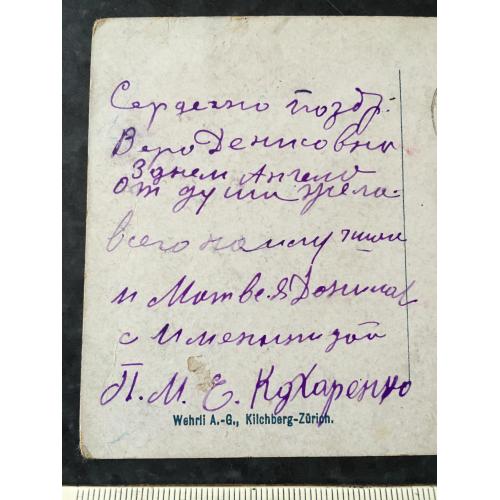 Сердечно Поздр:
Вера Денисовна
З днем Ангела
от души жела-
всего наилучшаго
и Матвея Данилов
с Именинницей
П. М. Е. Кухаренко
Wehrli A.-G., Kilchberg-Zürich.